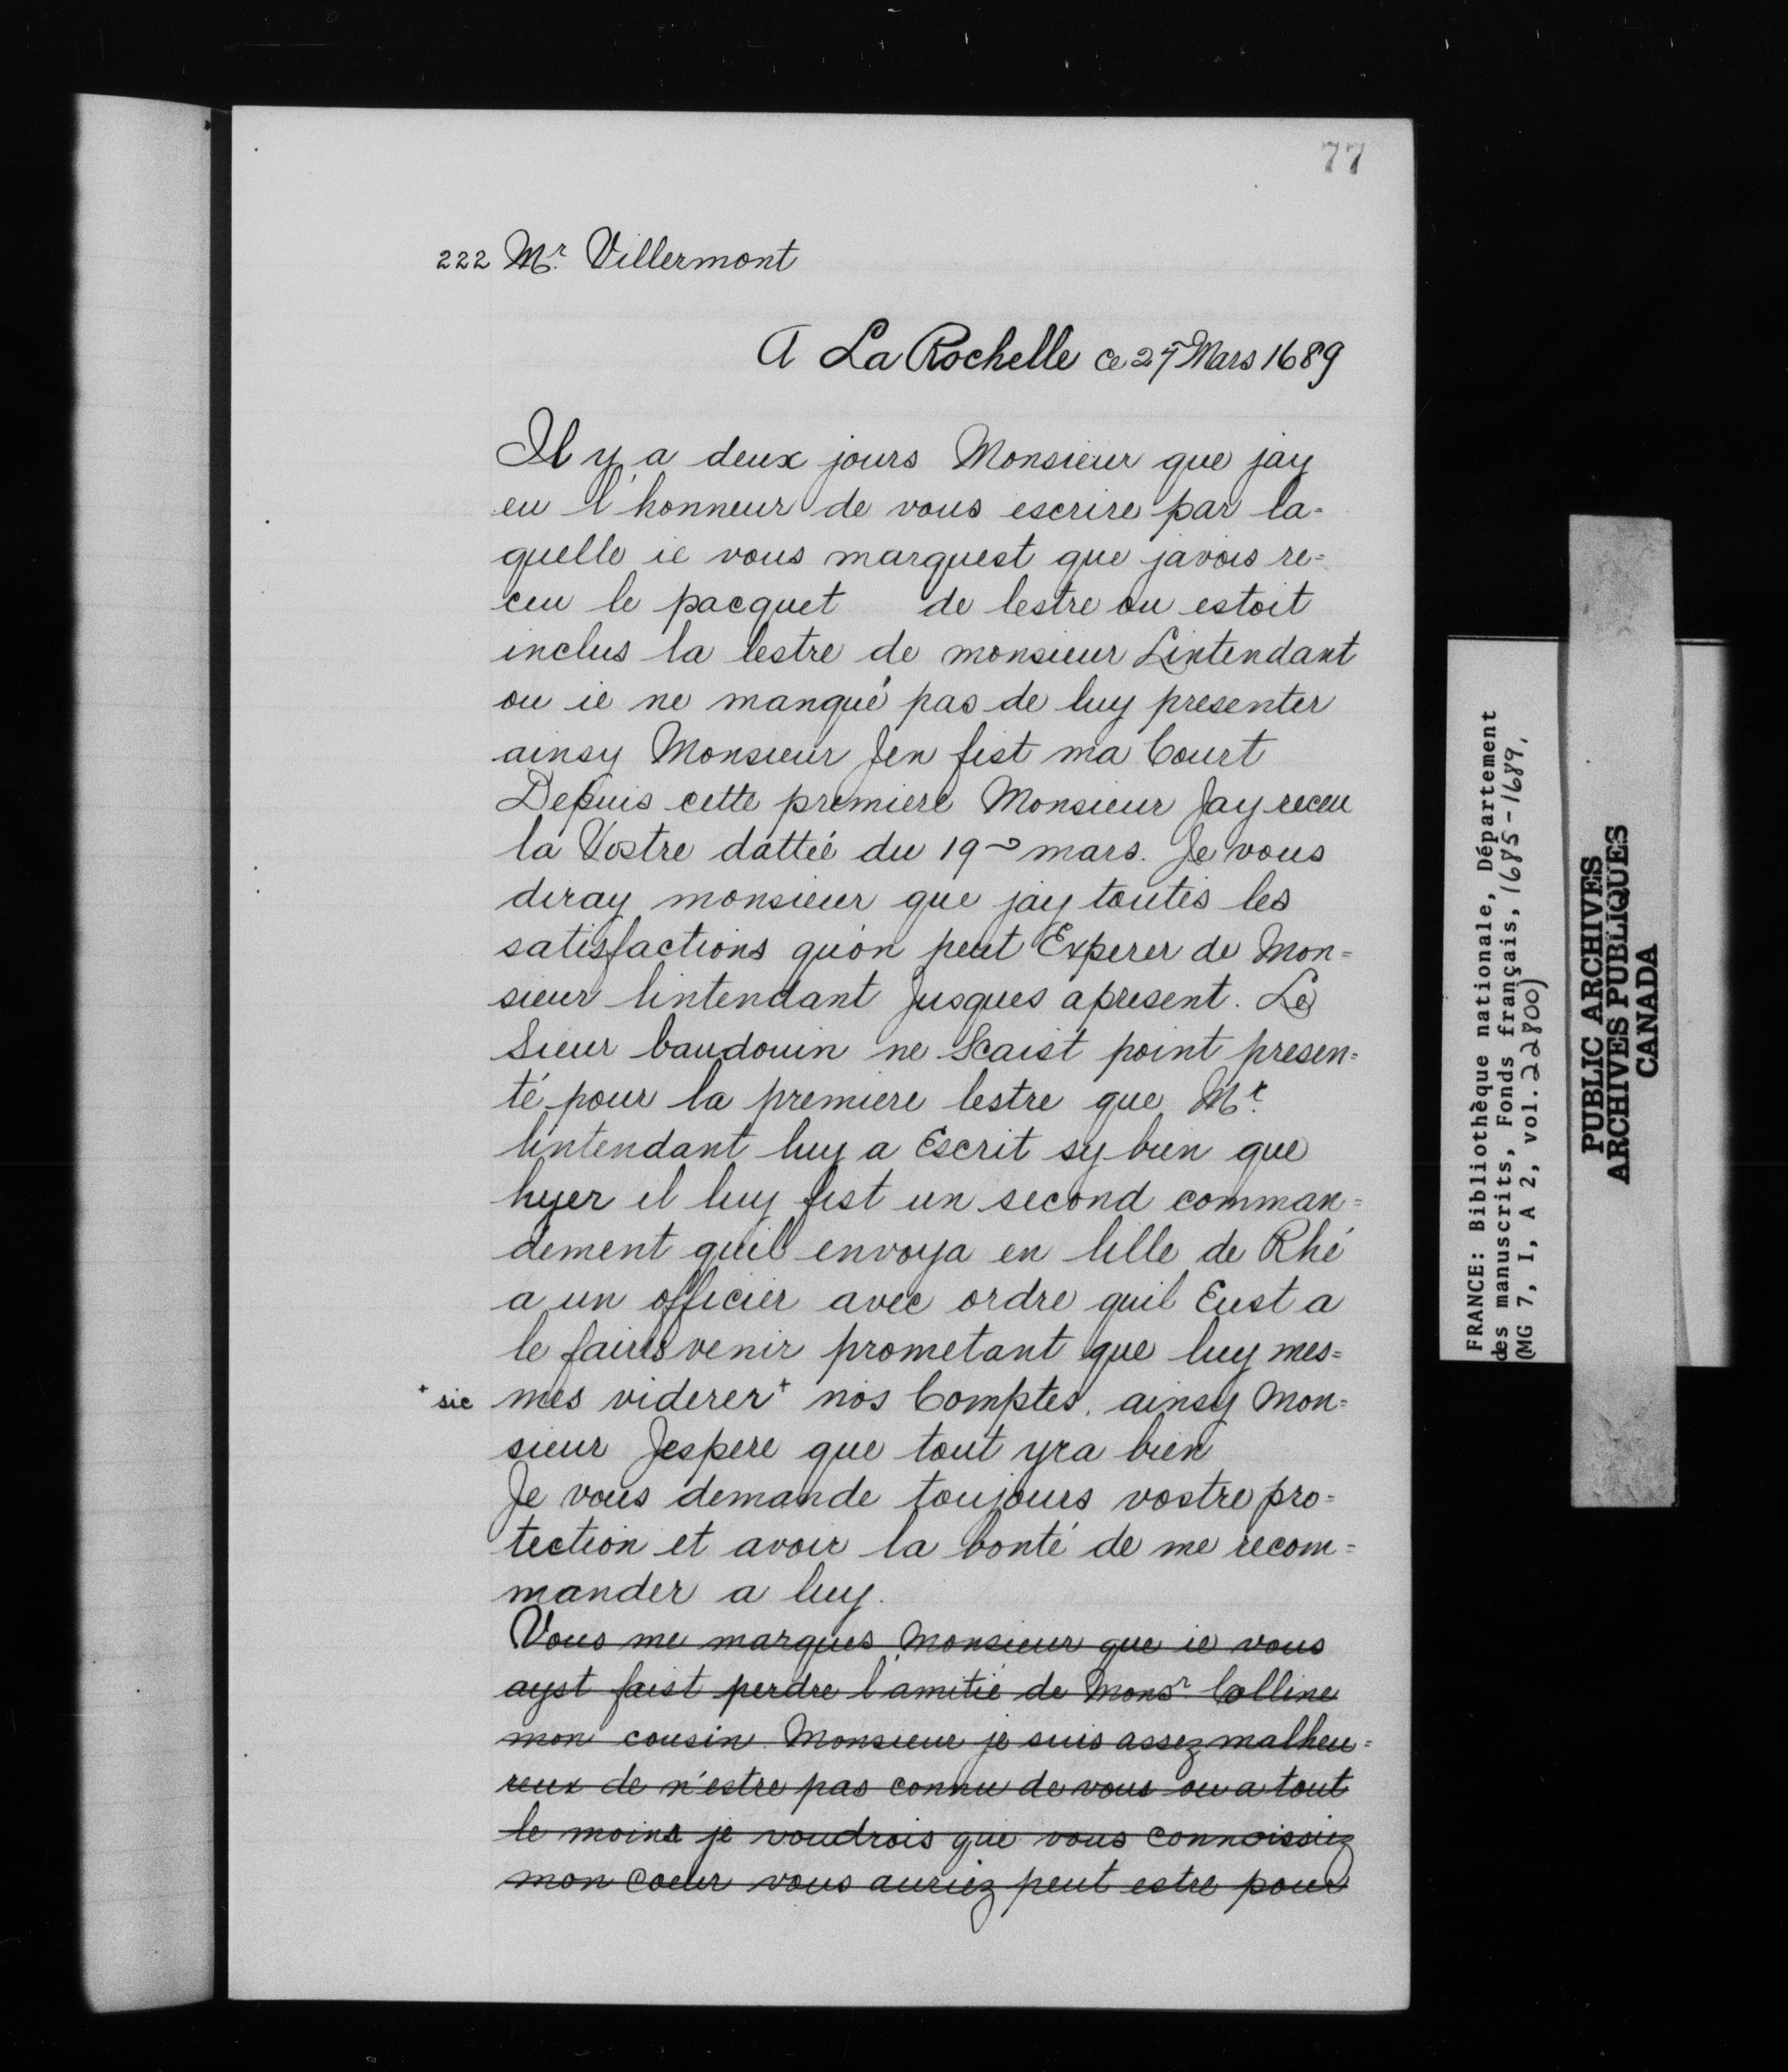 77
222 Mr. Villermont
A La Rochelle ce 27 Mars 1689
Il y a deux jours Monsieur que jay
eu l'honneur de vous escrire par la-
quelle ie vous marquest que javois re=
ceu le pacquet de lestre ou estoit
inclus la lestre de monsieur Lintendant
ou ie ne manqué pas de luy presenter
ainsy Monsieur Jen fist ma Court
Depuis cette premiere Monsieur Jay receu
la Vostre dattée du 19e mars. Je vous
diray monsieur que jay toutes les
satisfactions qu'on peut Experer de Mon=
sieur lintendant Jusques apresent. Le
Sieur baudouin ne Scaist point presen=
té pour la premiere lestre que Mr.
lintendant luy a Escrit sy bien que
hyer il luy fist un second comman=
dement quil envoya en lille de Rhé
a un officier avec ordre quil Eust a
le faire venir prometant que luy mes=
+ sic mes viderer + nos Comptes. ainsy Mon=
sieur Jespere que tout yra bien
Je vous demande toujours vostre pro=
tection et avoir la bonté de me recom=
mander a luy.
Vous me marques Monsieur que ie vous
ayst faist perdre l'amitié de Monsr Colline
mon cousin. Monsieur je suis assez malheu=
reux de n'estre pas connu de vous ou a tout
le moins je voudrois que vous connoissiez
mon coeur vous auriez peut estre pour
FRANCE: Bibliothèque nationale, Département
des manuscrits, Fonds français, 1685-1689.
(MG 7, I, A 2, vol. 22800)
PUBLIC ARCHIVES
ARCHIVES PUBLIQUES
CANADA